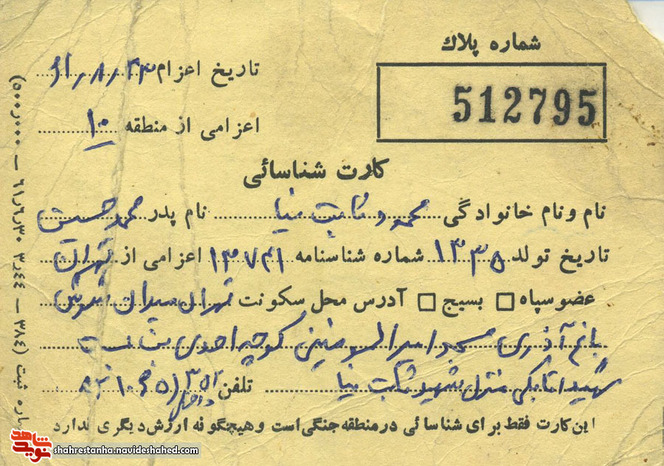 شماره پلاك
512795
تاریخ اعزام ۶۱٫۸٫۲۳
اعزامی از منطقه ۱۰
کارت شناسائی
نام و نام خانوادگی محمود ثابت نیا نام پدر محمدحسین
تاریخ تولد ۱۳۳۵ شماره شناسنامه ۱۳۷۴۱ اعزامی از تهران
عضو سپاه □ بسیج □ آدرس محل سکونت تهران میدان شوش
مسجد امیرالمومنین کوچه احدی بن بست
شهید منزل شهید ثابت نیا تلفن
این کارت فقط برای شناسائی در منطقه جنگی است و هیچگونه ارزش دیگری ندارد
نوید شاهد
shahrestanha.navideshahed.com